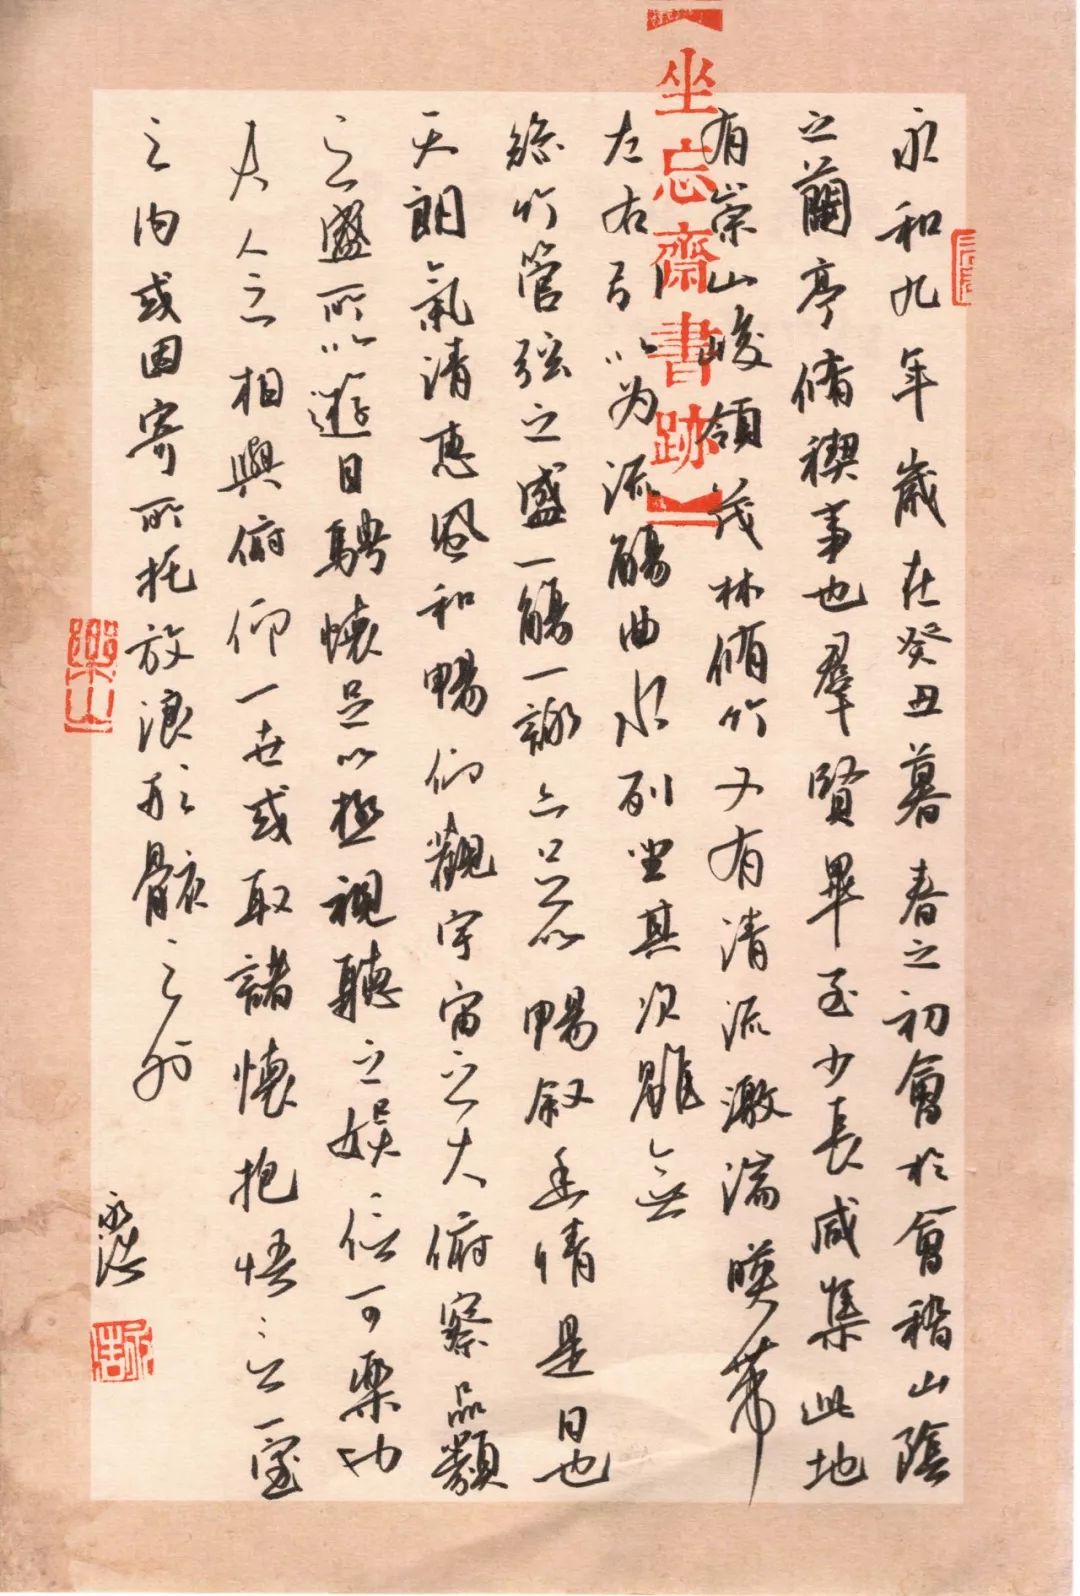 【坐忘齋書跡】
永和九年歲在癸丑暮春之初會於會稽山陰
之蘭亭脩禊事也羣賢畢至少長咸集此地
有崇山峻領茂林脩竹又有清流激湍暎帶
左右引以为流觴曲水列坐其次雖無
絲竹管弦之盛一觴一詠亦足以暢叙幽情是日也
天朗氣清惠風和暢仰觀宇宙之大俯察品類
之盛所以遊目騁懷足以極視聽之娛信可樂也
夫人之相與俯仰一世或取諸懷抱悟言一室
之内或因寄所托放浪形骸之外
樂山